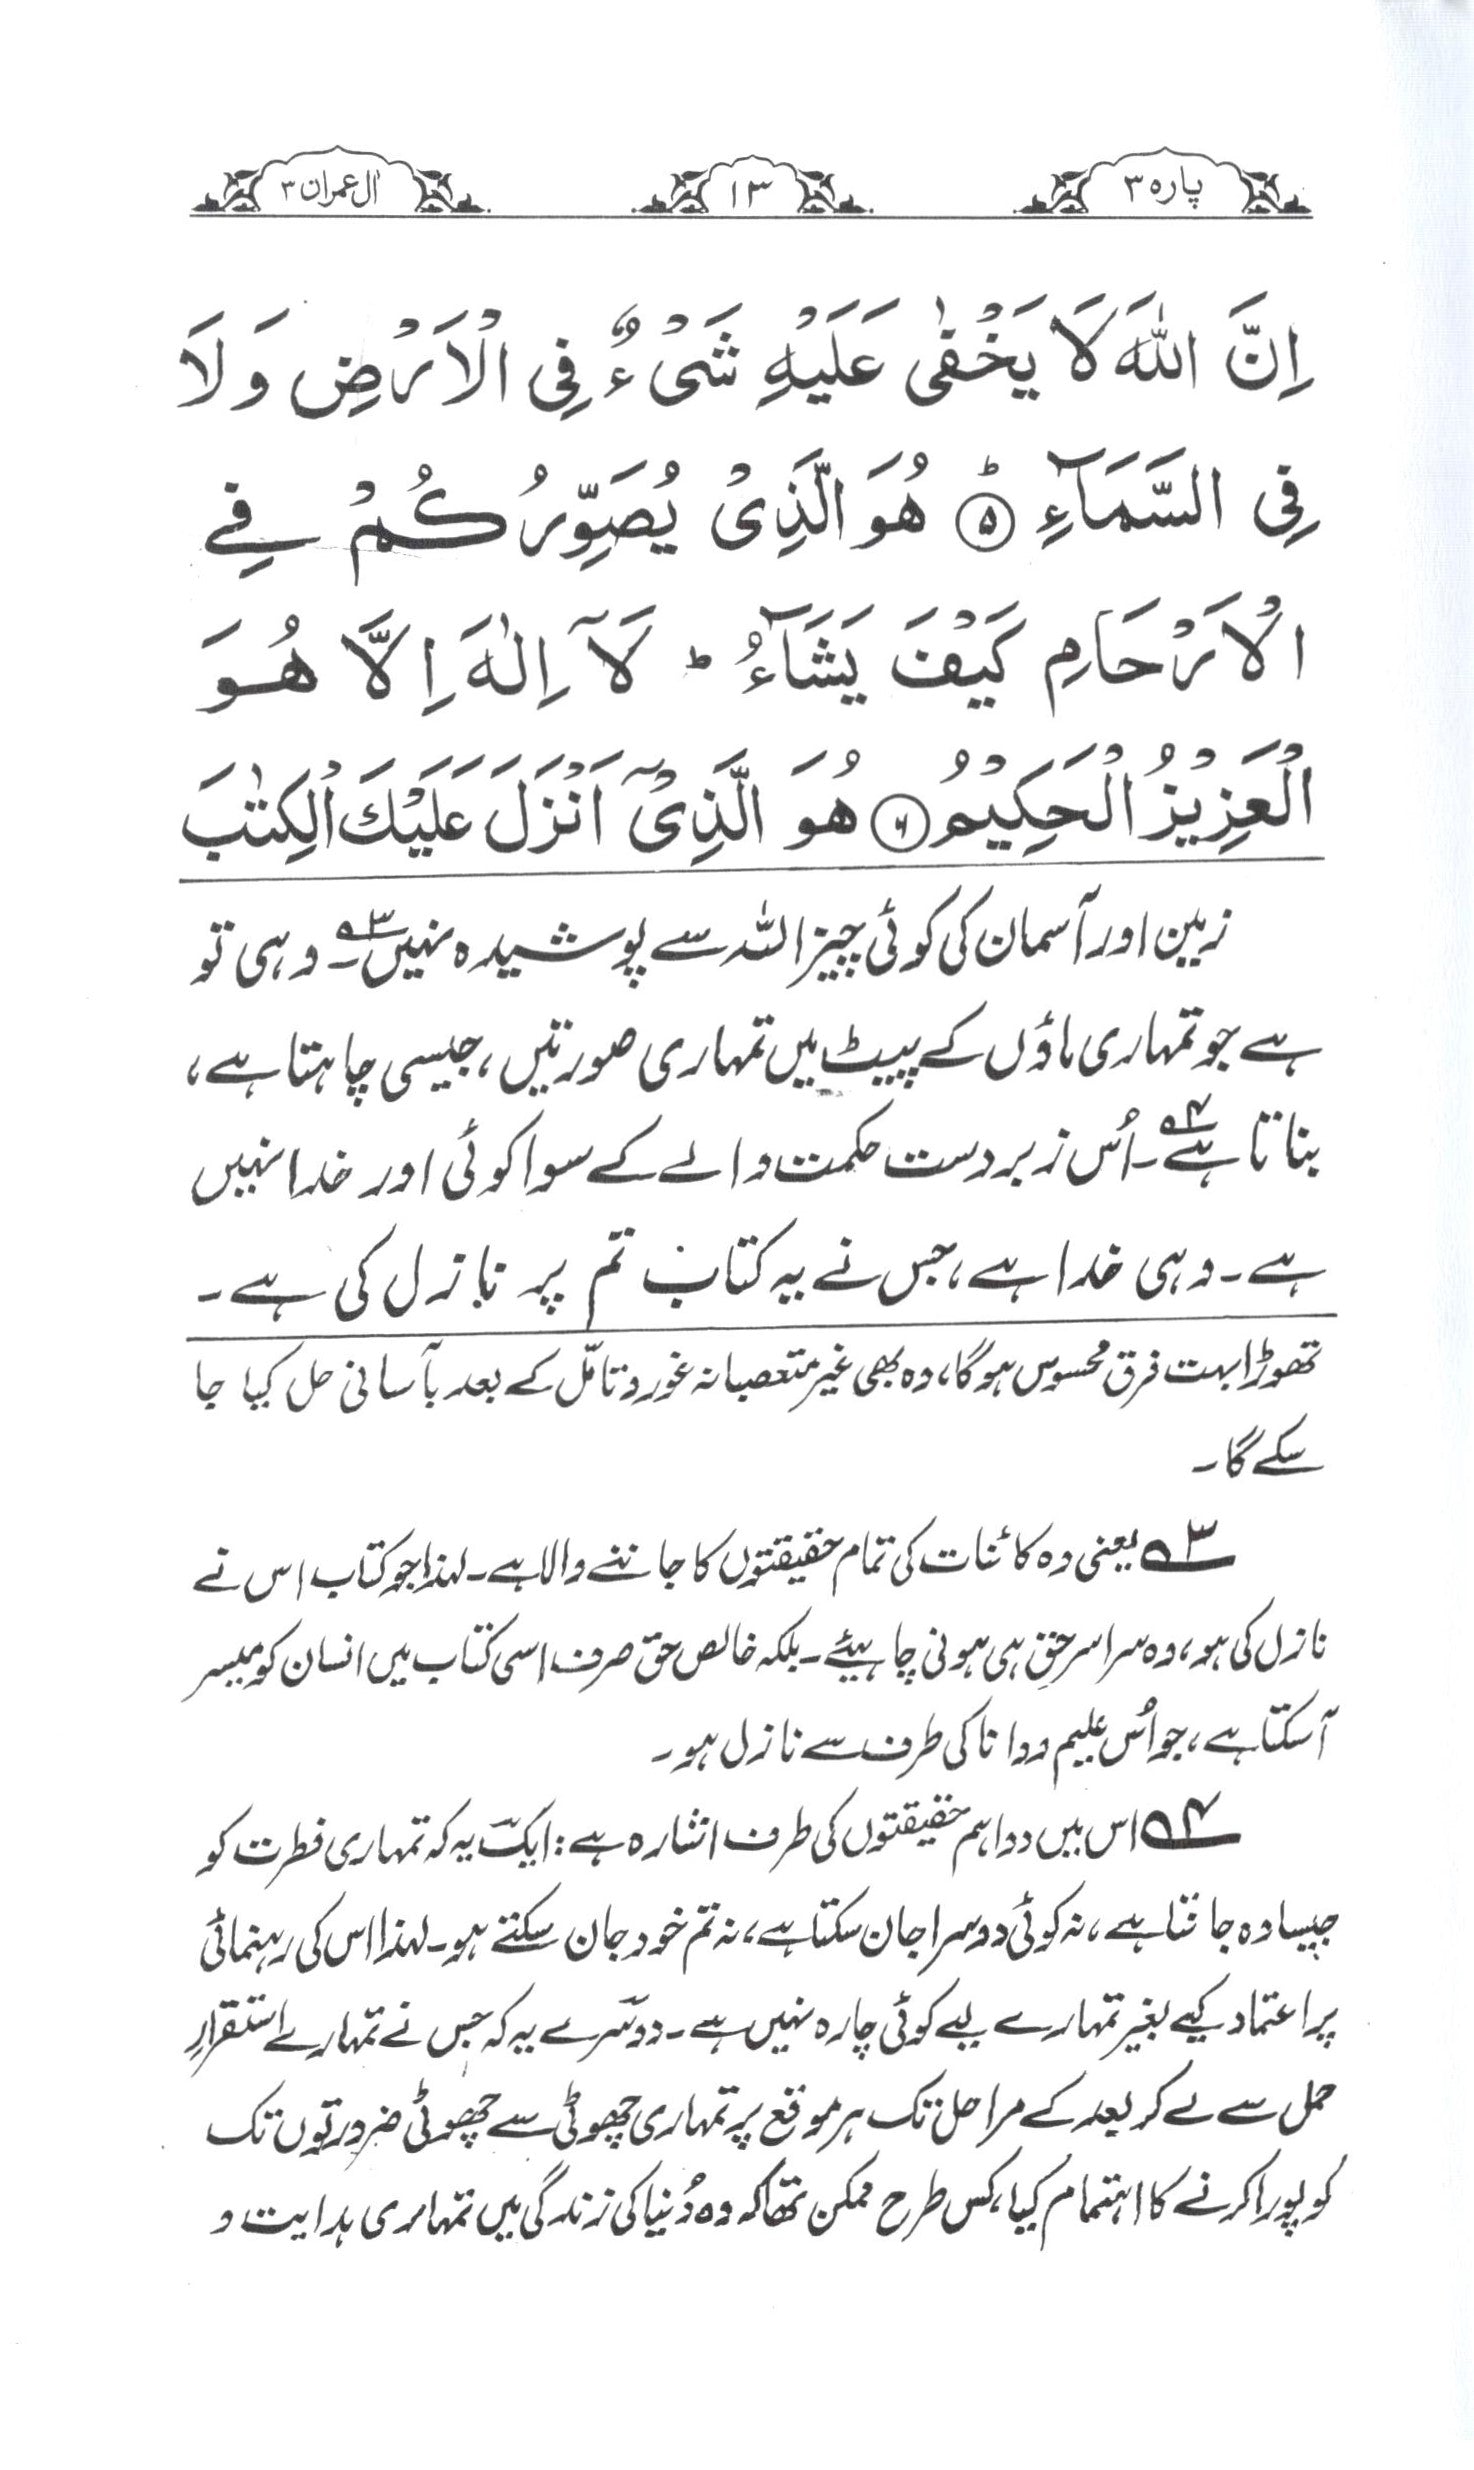 پارہ ۳
۱۳
اٰل عمران ۳
اِنَّ اللّٰهَ لَا يَخْفٰى عَلَيْهِ شَىْءٌ فِى الْاَرْضِ وَلَا
فِى السَّمَآءِ ۵ؕ هُوَ الَّذِىْ يُصَوِّرُكُمْ فِى
الْاَرْحَامِ كَيْفَ يَشَآءُ ؕ لَآ اِلٰهَ اِلَّا هُوَ
الْعَزِيْزُ الْحَكِيْمُ ۶ هُوَ الَّذِىْٓ اَنْزَلَ عَلَيْكَ الْكِتٰبَ
زمین اور آسمان کی کوئی چیز اللہ سے پوشیدہ نہیں۳؎۔ وہی تو
ہے جو تمہاری ماؤں کے پیٹ میں تمہاری صورتیں، جیسی چاہتا ہے،
بناتا ہے۴؎۔ اُس زبردست حکمت والے کے سوا کوئی اور خدا نہیں
ہے۔ وہی خدا ہے، جس نے یہ کتاب تم پر نازل کی ہے۔
تھوڑا بہت فرق محسوس ہوگا، وہ بھی غیر متعصبانہ غور و تامّل کے بعد بآسانی حل کیا جا
سکے گا۔
۳؎ یعنی وہ کائنات کی تمام حقیقتوں کا جاننے والا ہے۔ لہذا جو کتاب اس نے
نازل کی ہو، وہ سراسر حق ہی ہونی چاہیئے۔ بلکہ خالص حق صرف اسی کتاب میں انسان کو میسر
آسکتا ہے، جو اُس علیم و دانا کی طرف سے نازل ہو۔
۴؎ اس میں دو اہم حقیقتوں کی طرف اشارہ ہے: ایک یہ کہ تمہاری فطرت کو
جیسا وہ جانتا ہے، نہ کوئی دوسرا جان سکتا ہے، نہ تم خود جان سکتے ہو۔ لہذا اس کی رہنمائی
پر اعتماد کیے بغیر تمہارے لیے کوئی چارہ نہیں ہے۔ دوسرے یہ کہ جس نے تمہارے استقرارِ
حمل سے لے کر بعد کے مراحل تک ہر موقع پر تمہاری چھوٹی سے چھوٹی ضرورتوں تک
کو پورا کرنے کا اہتمام کیا، کس طرح ممکن تھا کہ وہ دُنیا کی زندگی میں تمہاری ہدایت و